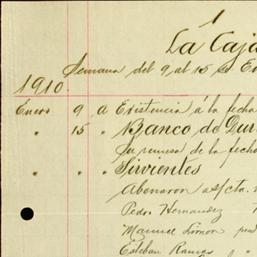 1
La Caja
Semana del 9 al 15 de En
1910.
Enero 9 a Existencia á la fecha
" 15 " Banco de Dur
Su remesa de la fecha
Sirvientes
Abonaron a s/cta.
Pedro Hernandez
Manuel Simon
Esteban Ramos